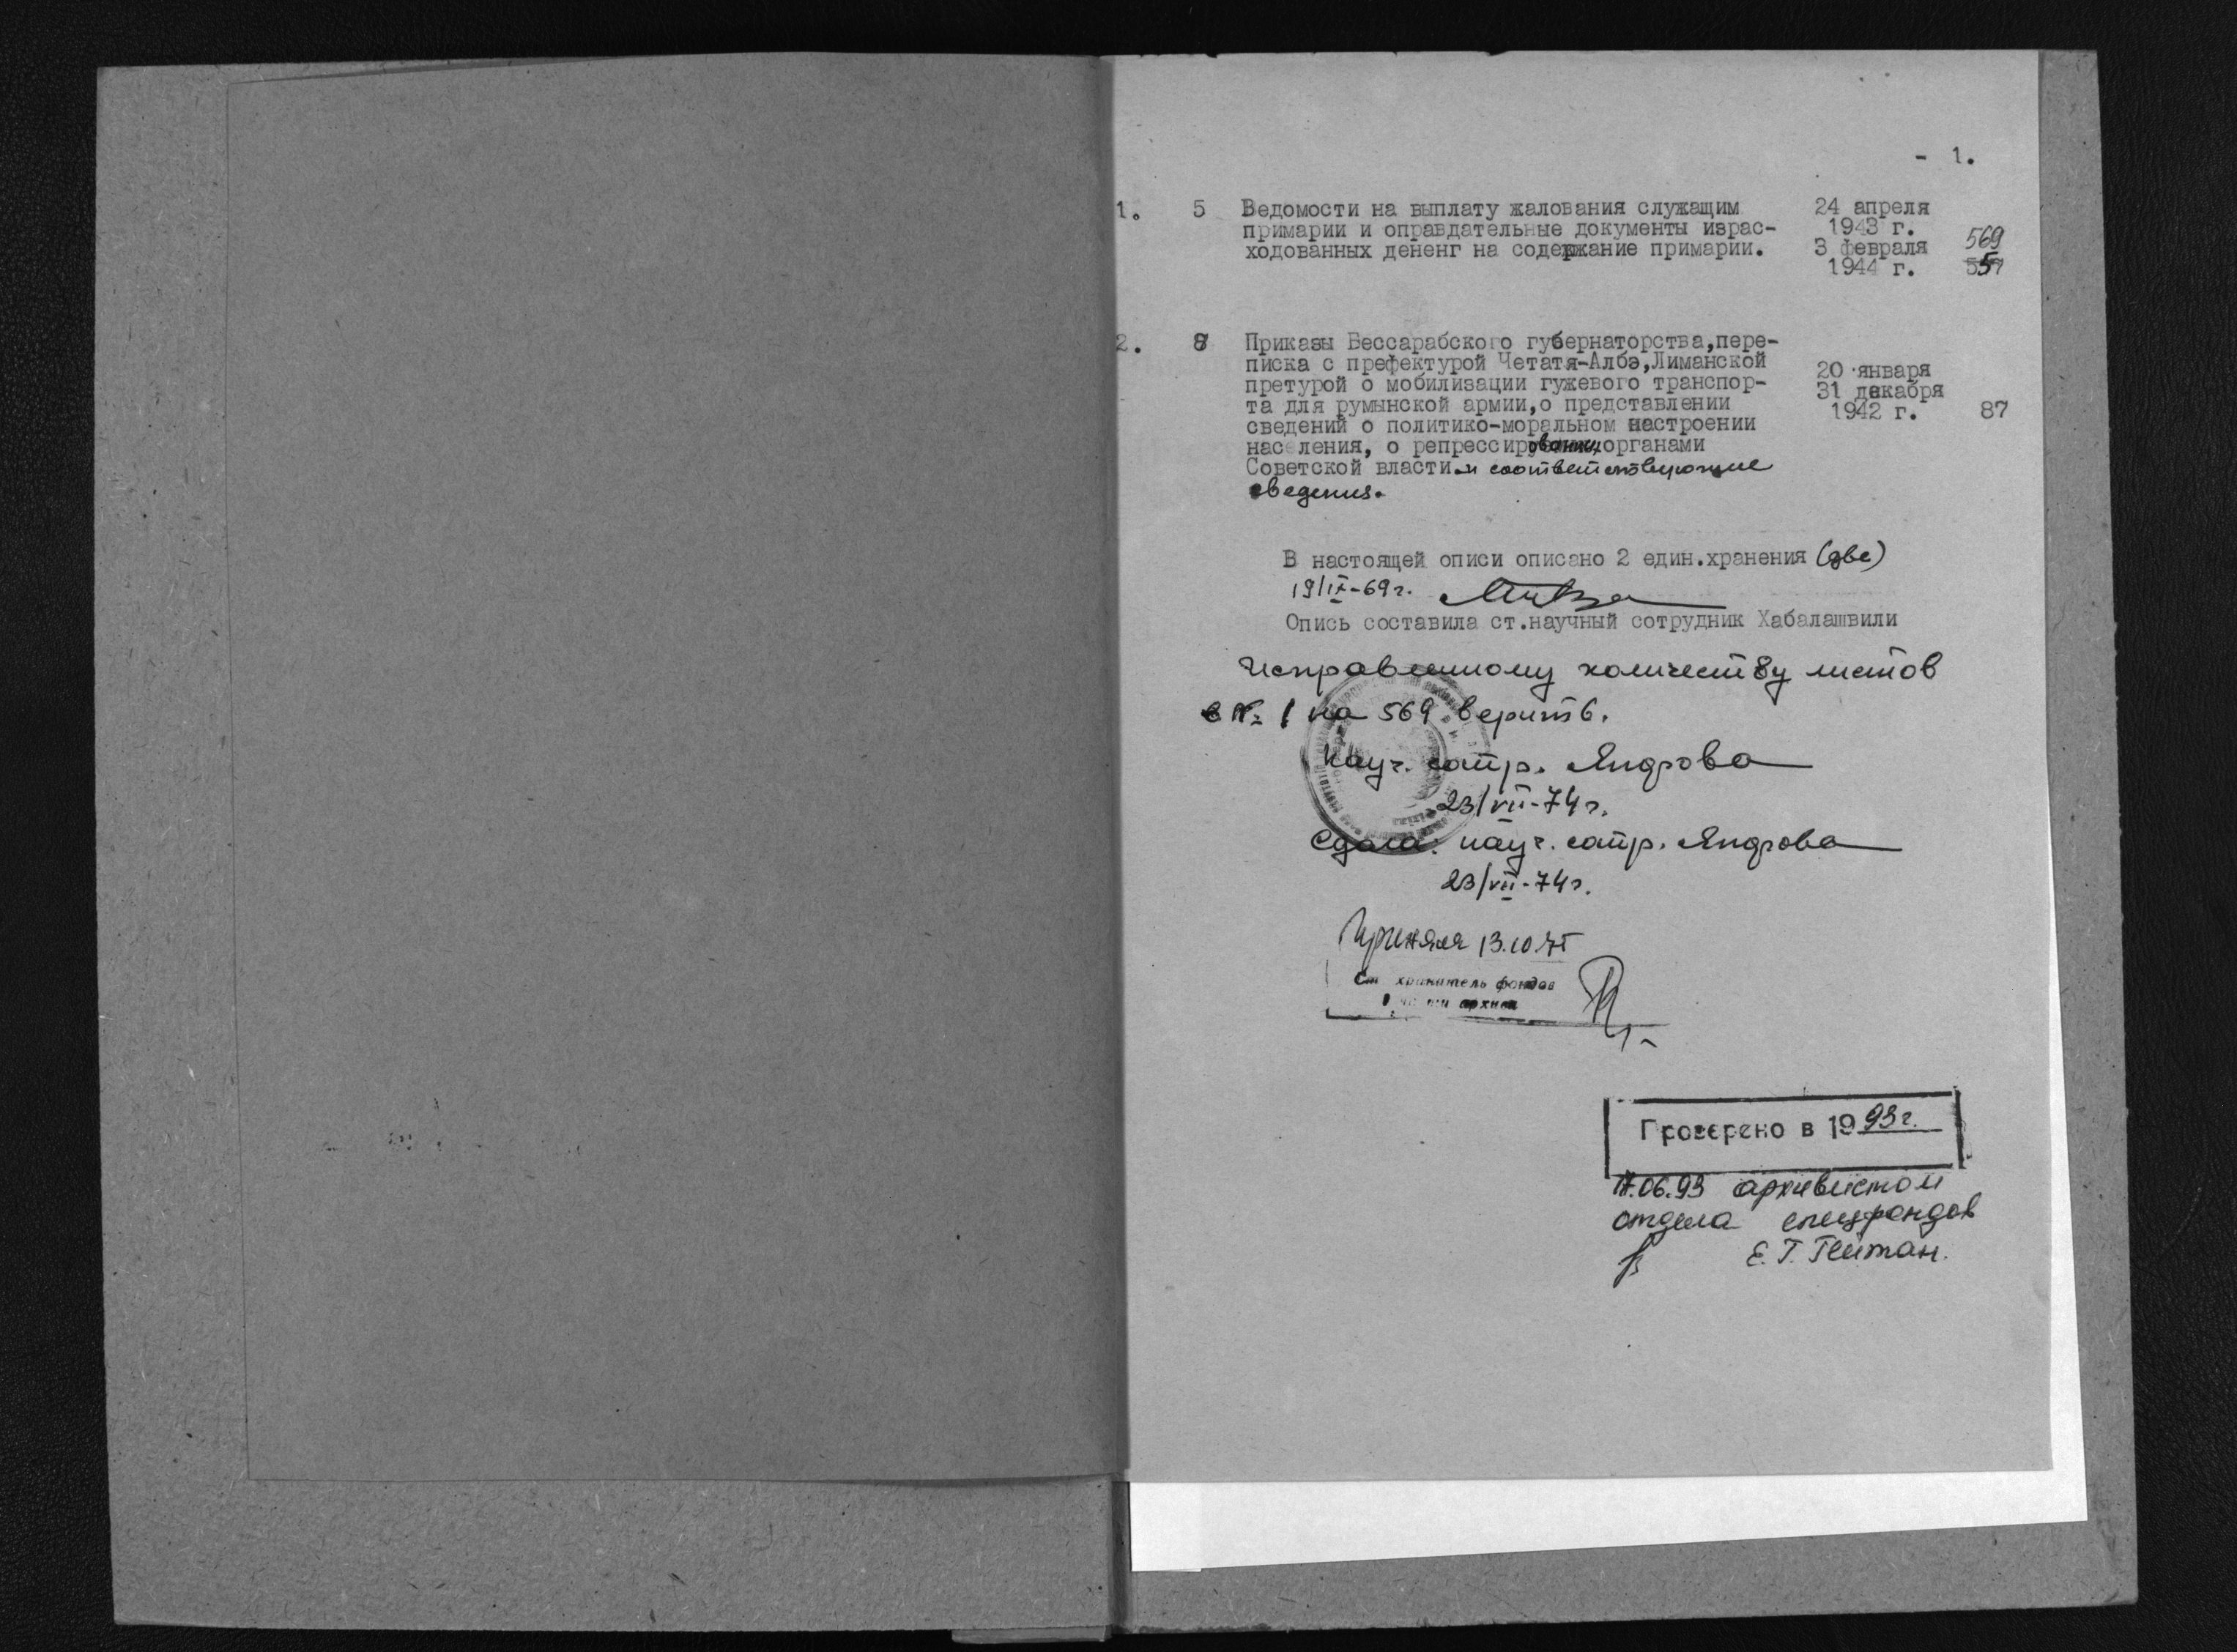 - 1.
1. 5 Ведомости на выплату жалования служащим 24 апреля
примарии и оправдательные документы израс- 1943 г.
ходованных дененг на содержание примарии. 3 февраля 569
1944 г. 557
2. 8 Приказы Бессарабского губернаторства,пере-
писка с префектурой Четатя-Албэ,Лиманской 20 января
претурой о мобилизации гужевого транспор- 31 декабря
та для румынской армии,о представлении 1942 г. 87
сведений о политико-моральном настроении
населения, о репрессированных органами
Советской власти и соответствующие
сведения.
В настоящей описи описано 2 един.хранения (две)
19/IX-69г.
Опись составила ст.научный сотрудник Хабалашвили
Исправленному количеству листов
в № 1 на 569 верить.
Науч. сотр. Яндрова
23/VII-74г.
Сдала: науч. сотр. Яндрова
23/VII-74г.
Приняла 13.10.75
Ст хранитель фондов
архива
Проверено в 1993г.
17.06.93 архивистом
отдела спецфондов
Е. Г. Гейтан.